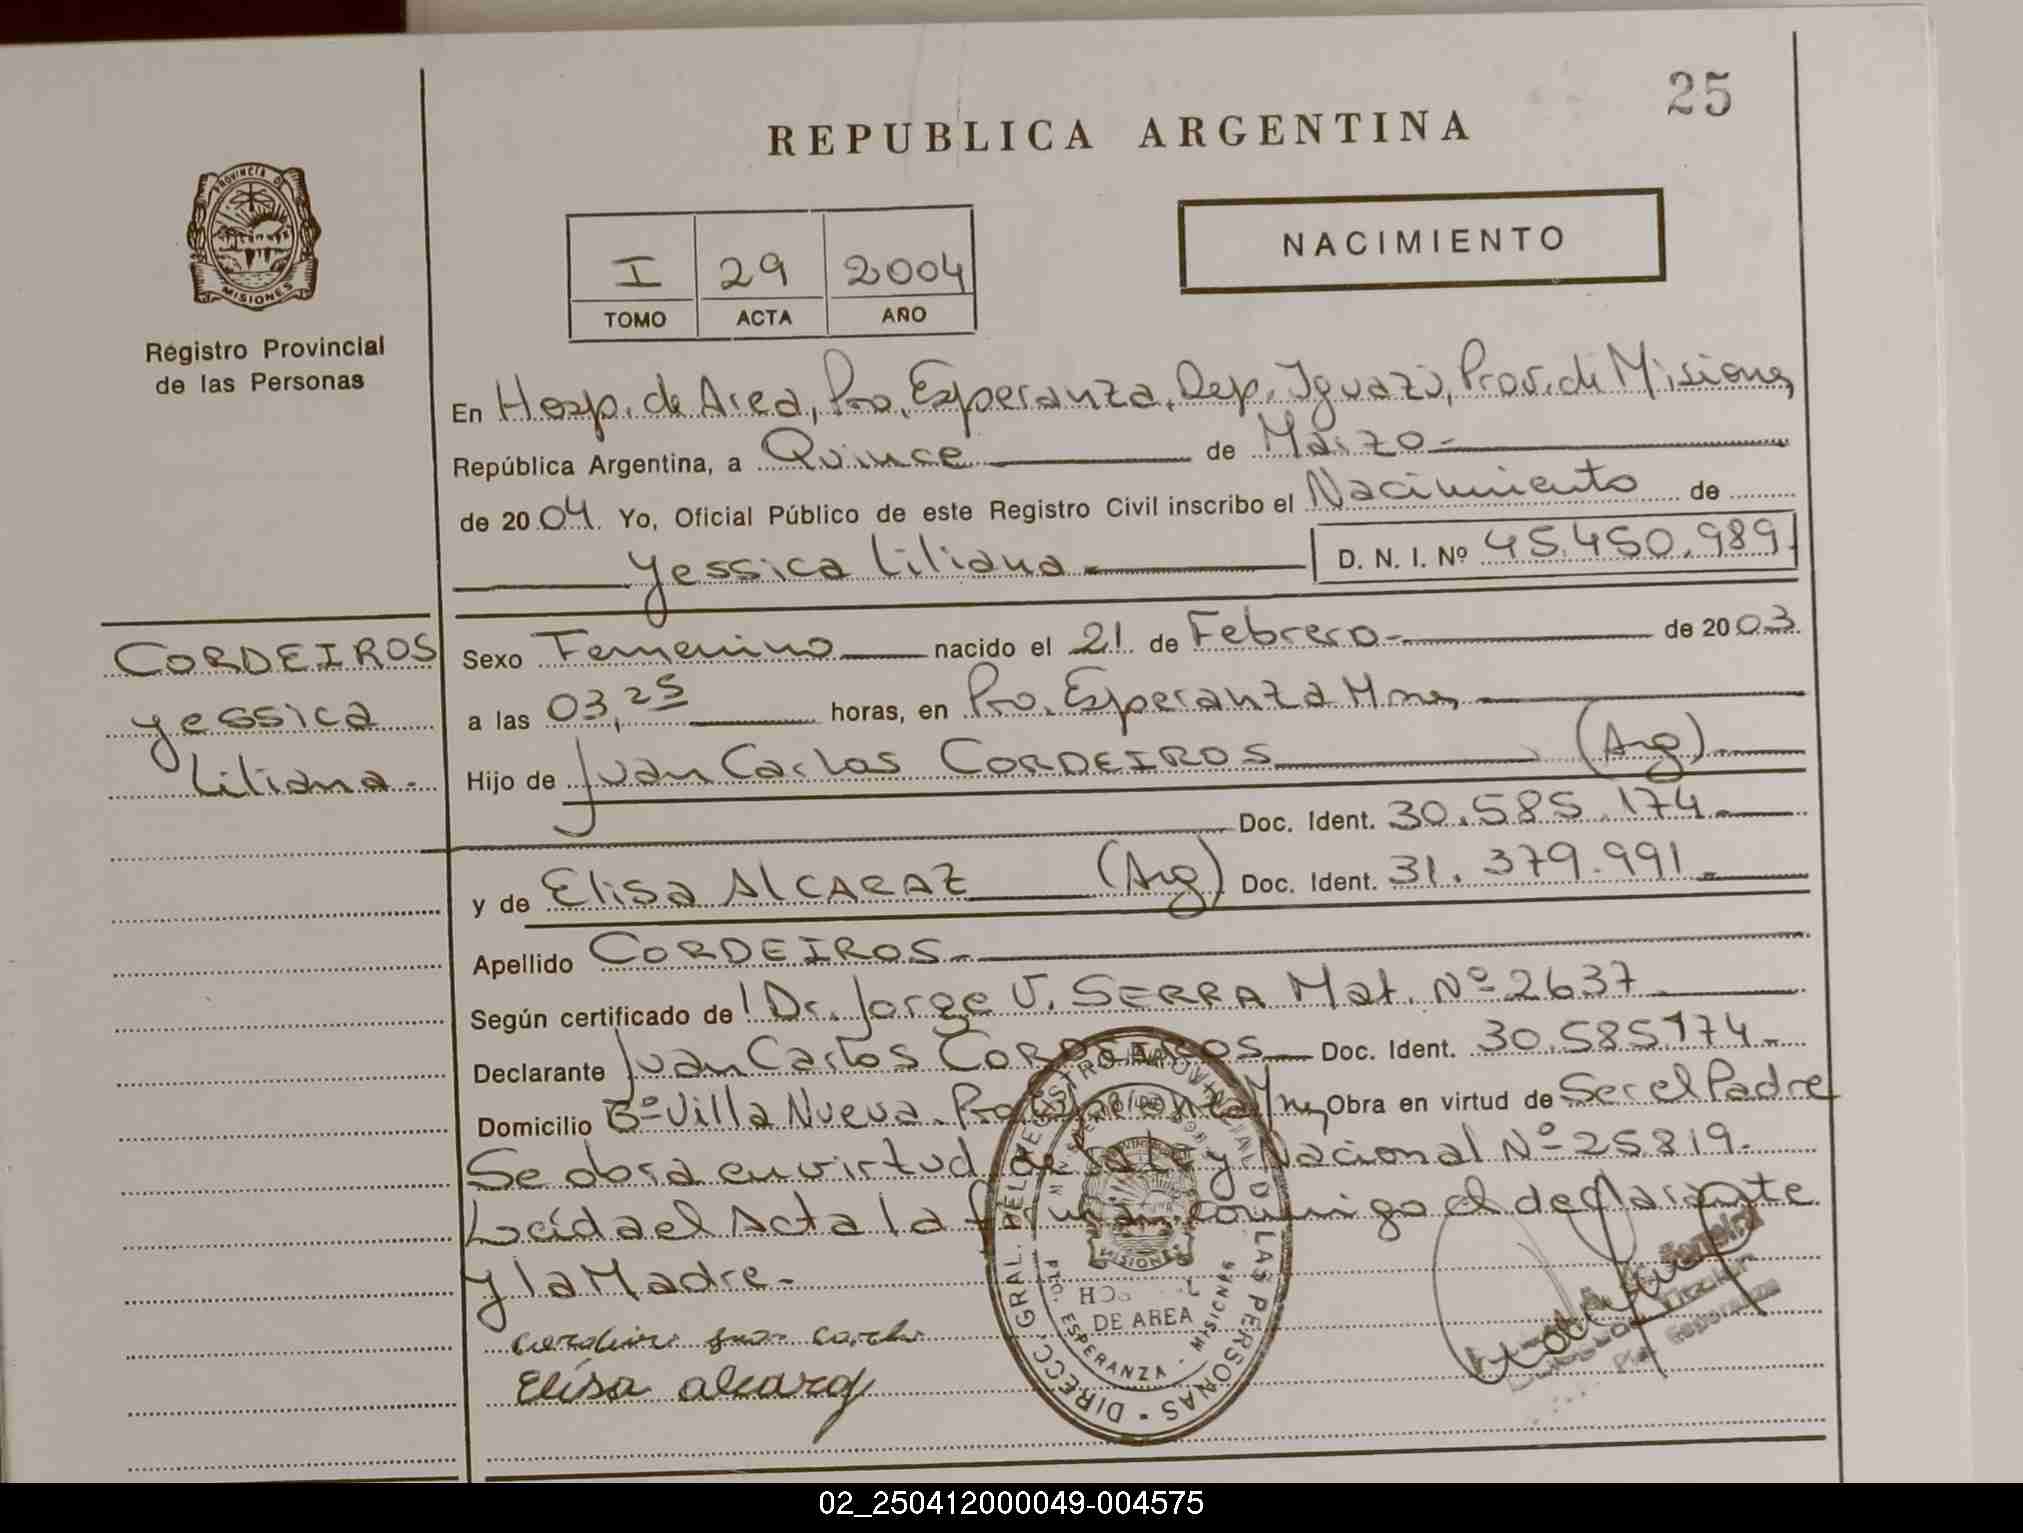 25
REPUBLICA ARGENTINA
PROVINCIA DE
MISIONES
Registro Provincial
de las Personas
NACIMIENTO
I 29 2004
TOMO ACTA AÑO
En Hosp. de Area, Pto. Esperanza, Dep. Iguazú, Prov. de Misiones
República Argentina, a Quince de Marzo.-
de 2004. Yo, Oficial Público de este Registro Civil inscribo el Nacimiento de
Yessica Liliana.- D. N. I. Nº 45.450.989.
CORDEIROS
Yessica
Liliana.-
Sexo Femenino nacido el 21 de Febrero.- de 2003.
a las 03,25 horas, en Pto. Esperanza Mnes
Hijo de Juan Carlos CORDEIROS (Arg).-
Doc. Ident. 30.585.174.-
y de Elisa ALCARAZ (Arg) Doc. Ident. 31.379.991.-
Apellido CORDEIROS.-
Según certificado de Dr. Jorge V. SERRA Mat. Nº 2637.
Declarante Juan Carlos CORDEIROS Doc. Ident. 30.585174.-
Domicilio Bº Villa Nueva. Pto. Esperanza Mnes Obra en virtud de Ser el Padre
Se obra en virtud de la Ley Nacional Nº 25819.-
Leída el Acta la firman conmigo el declarante
y la Madre.-
Juan
Elisa alcaraz
DIRECC. GRAL. DEL REGISTRO PROVINCIAL DE LAS PERSONAS
MISIONES
DE AREA
PTO. ESPERANZA - MISIONES
02_250412000049-004575